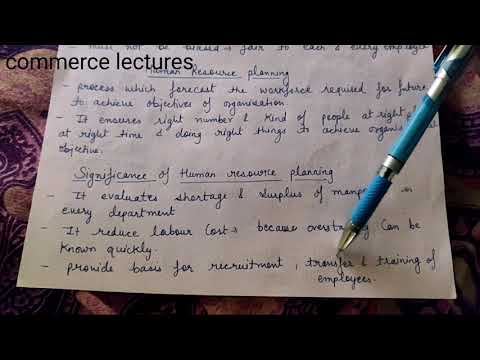 must not be biased → fair to each & every employee
commerce lectures
Human Resource planning
- process which forecast the workforce required for future
to achieve objectives of organisation
- It ensures right number & kind of people at right
at right time & doing right things to achieve
objective.
Significance of Human resource planning
- It evaluates shortage & surplus of
every department
- It reduce labour Cost → because Can be
Known quickly.
- provide basis for recruitment, transfer & training of
employees.